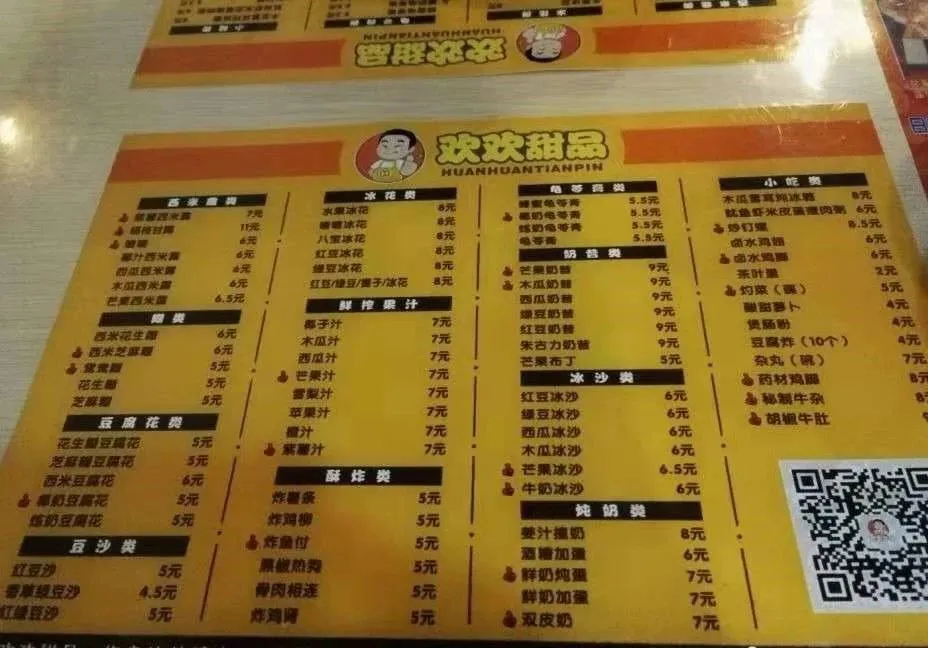 欢欢甜品
HUANHUANTIANPIN
西米露类
紫薯西米露 7元
杨枝甘露 11元
嘟嘟 6元
椰汁西米露 6元
西瓜西米露 6元
木瓜西米露 6元
芒果西米露 6.5元
糊类
西米花生糊 6元
西米芝麻糊 6元
鸳鸯糊 5元
花生糊 5元
芝麻糊 5元
豆腐花类
花生糊豆腐花 5元
芝麻糊豆腐花 5元
西米豆腐花 6元
椰奶豆腐花 5元
炼奶豆腐花 5元
豆沙类
红豆沙 5元
香草绿豆沙 4.5元
红绿豆沙 5元
冰花类
水果冰花 8元
嘟嘟冰花 8元
八宝冰花 8元
红豆冰花 8元
绿豆冰花 8元
红豆/绿豆/提子/冰花 8元
鲜榨果汁
椰子汁 7元
木瓜汁 7元
西瓜汁 7元
芒果汁 7元
雪梨汁 7元
苹果汁 7元
橙汁 7元
紫薯汁 7元
酥炸类
炸薯条 5元
炸鸡柳 5元
炸鱼付 5元
黑椒热狗 5元
骨肉相连 5元
炸鸡肾 5元
龟苓膏类
蜂蜜龟苓膏 5.5元
椰奶龟苓膏 5.5元
炼奶龟苓膏 5.5元
龟苓膏 5.5元
奶昔类
芒果奶昔 9元
木瓜奶昔 9元
西瓜奶昔 9元
绿豆奶昔 9元
红豆奶昔 9元
朱古力奶昔 9元
芒果布丁 5元
冰沙类
红豆冰沙 6元
绿豆冰沙 6元
西瓜冰沙 6元
木瓜冰沙 6元
芒果冰沙 6.5元
牛奶冰沙 6元
炖奶类
姜汁撞奶 8元
酒糟加蛋 6元
鲜奶炖蛋 7元
鲜奶加蛋 7元
双皮奶 7元
小吃类
木瓜雪耳炖冰糖 8元
鱿鱼虾米皮蛋瘦肉粥 6元
炒钉螺 8.5元
卤水鸡翅 6元
卤水鸡脚 6元
茶叶蛋 2元
灼菜（碟） 5元
酸甜萝卜 4元
煲肠粉 4元
豆腐炸（10个） 4元
杂丸（碗） 7元
药材鸡脚 8元
秘制牛杂 8
胡椒牛肚 9
欢欢甜品
HUANHUANTIANPIN